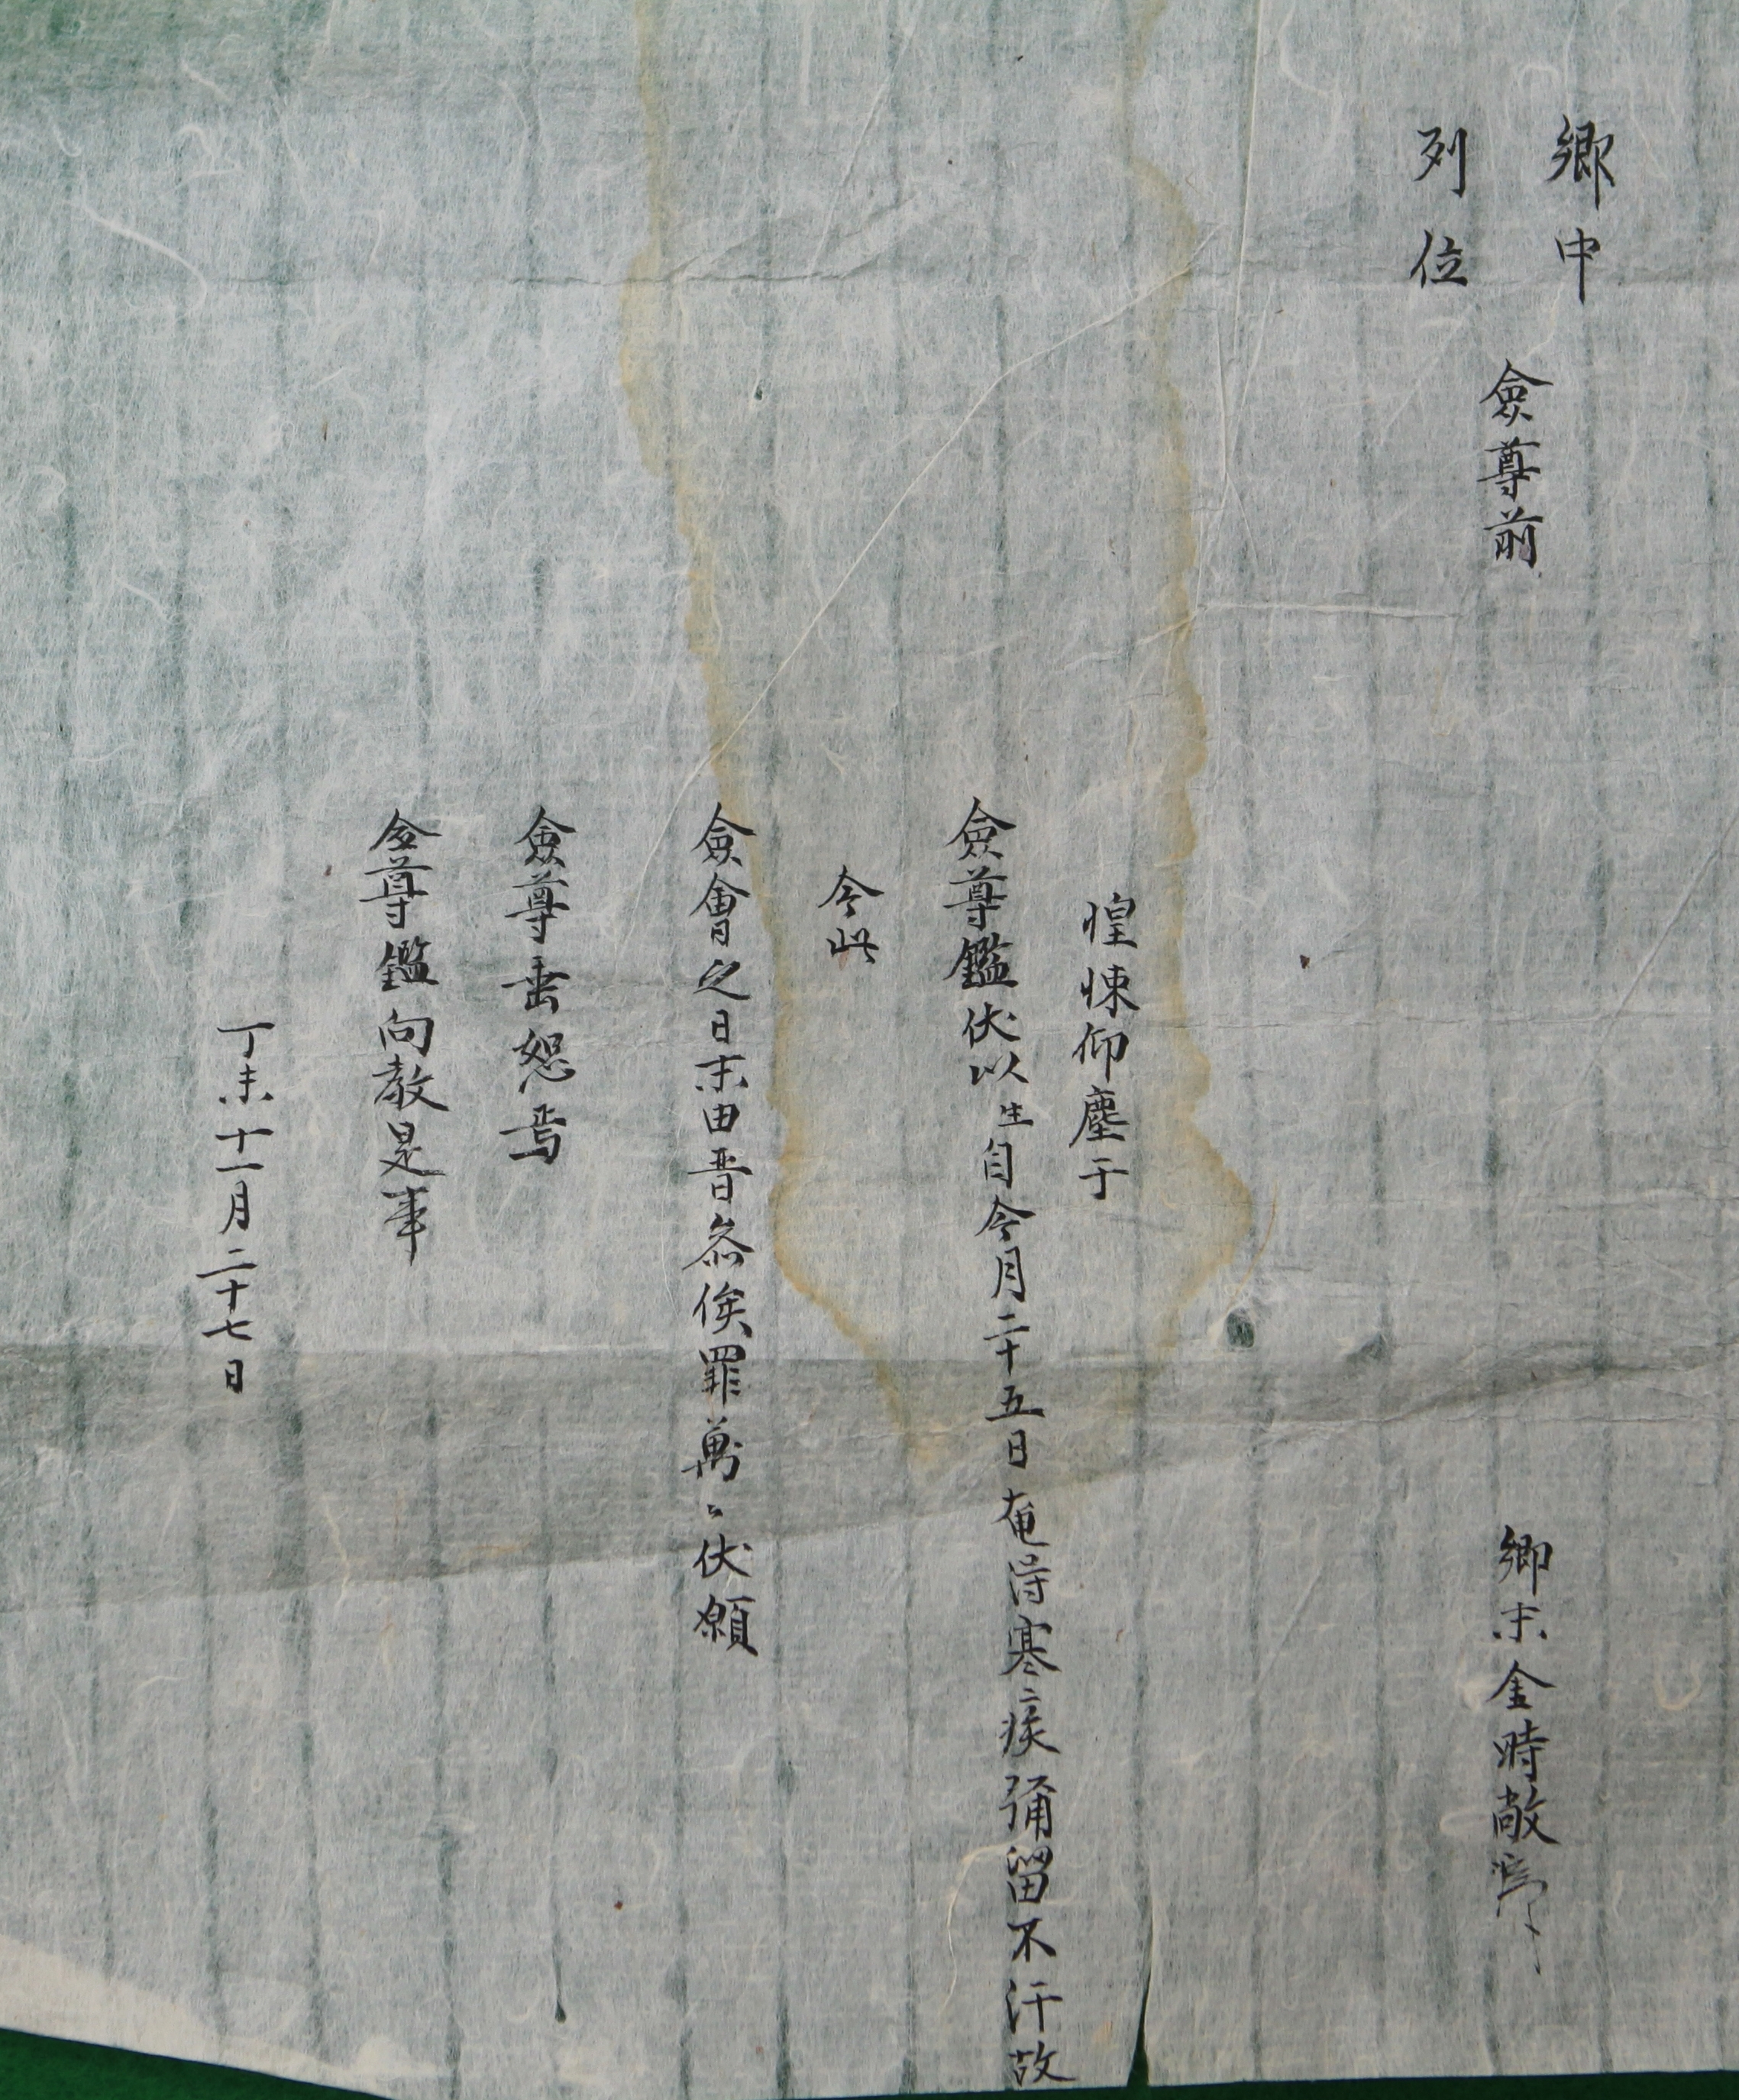 鄕中
列位
僉尊前
鄕末金時敞
惶悚仰塵于
僉尊鑑伏以生自今月二十五日奄得寒疾彌留不汗故
今此
僉會之日末由晋叅俟罪萬〻伏願
僉尊垂恕焉
僉尊鑑向敎是事
丁未十一月二十七日